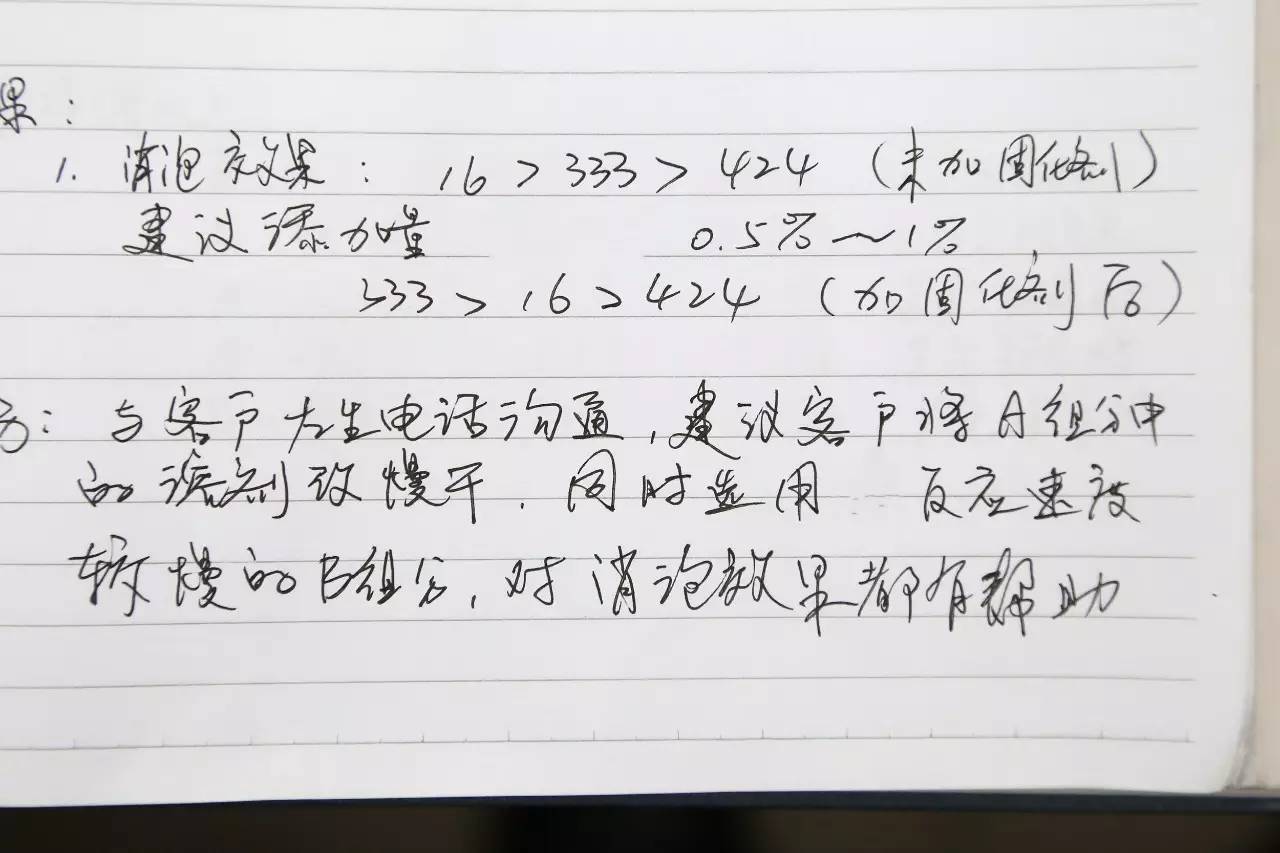 果：
1. 消泡效果： 16 > 333 > 424 （未加固化剂）
建议添加量 0.5%～1%
333 > 16 > 424 （加固化剂后）
与客户左生电话沟通，建议客户将A组分中
的溶剂改慢干．同时选用 反应速度
较慢的B组分，对消泡效果都有帮助